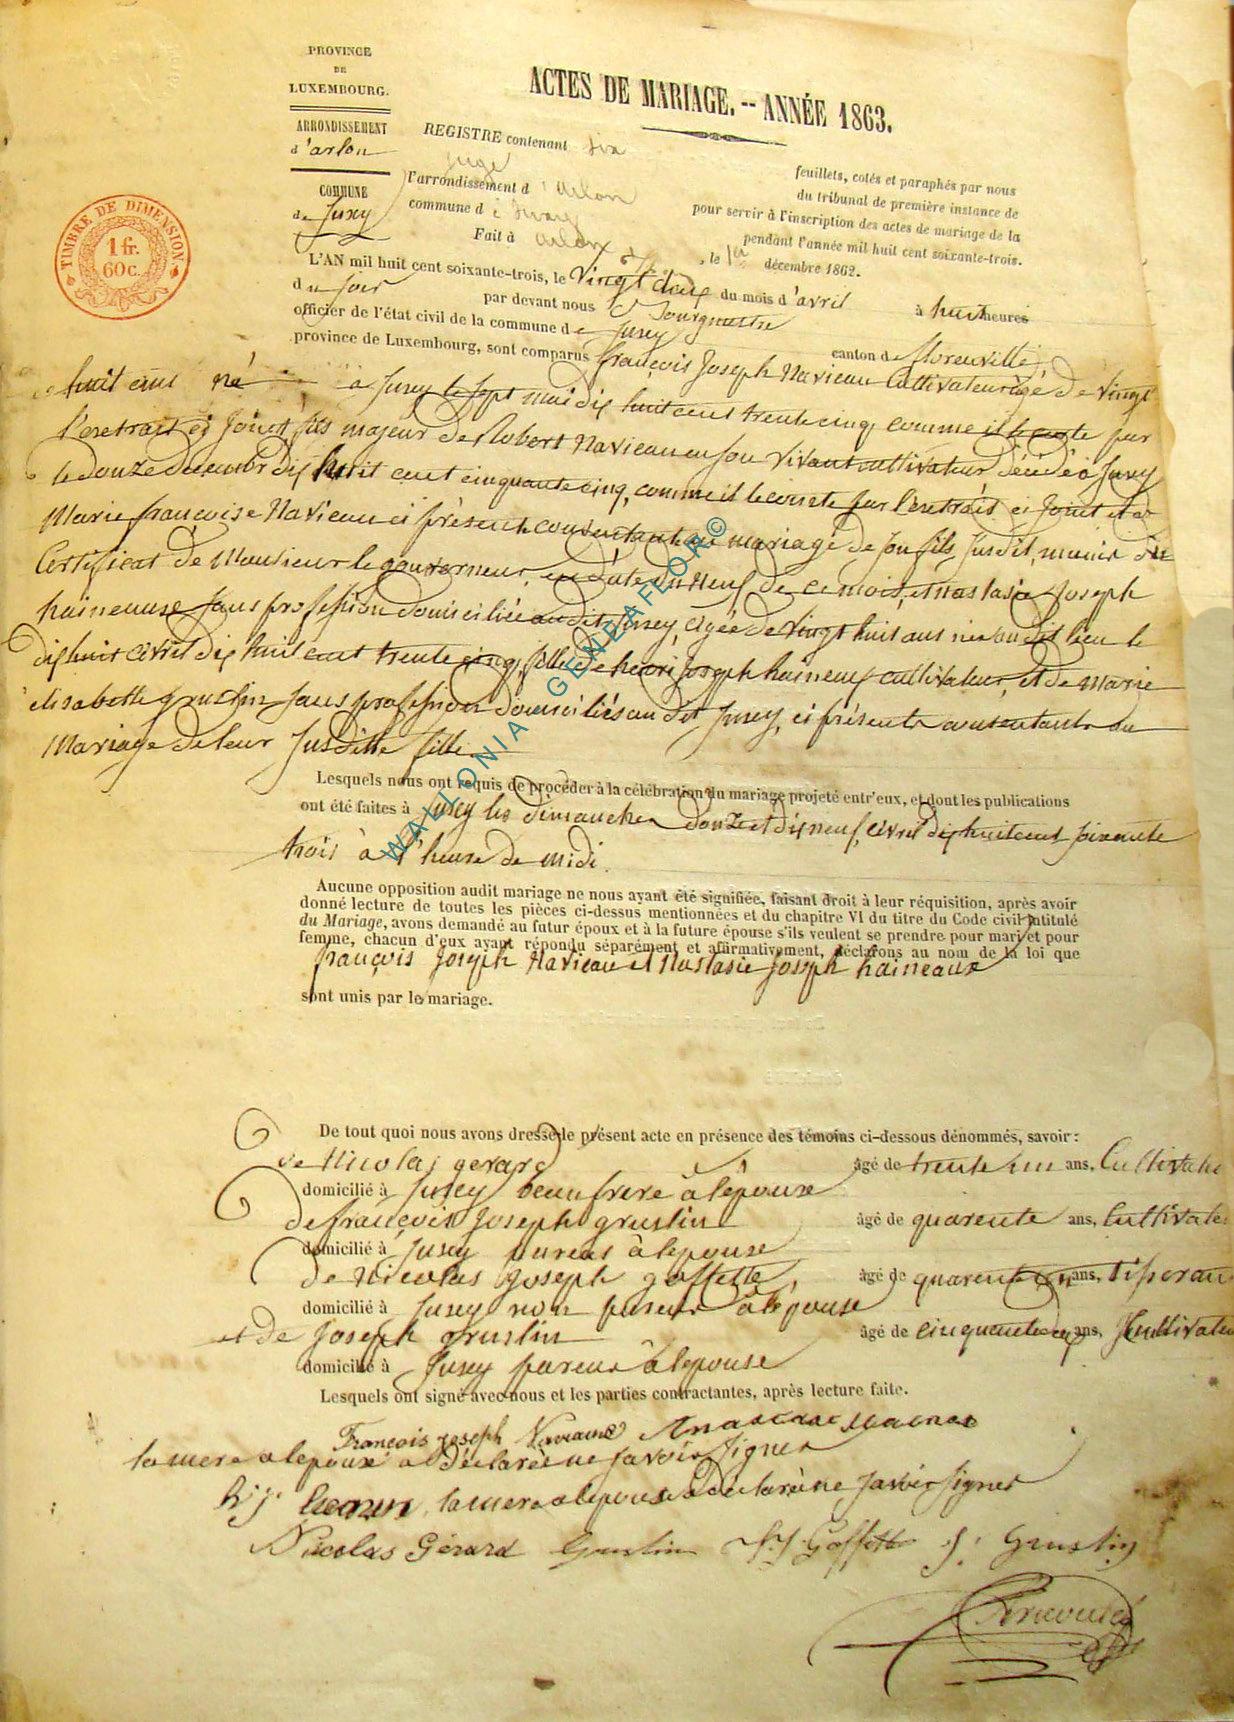 PROVINCE
DE
LUXEMBOURG.
ARRONDISSEMENT
d'arlon
COMMUNE
de Jusey
TIMBRE DE DIMENSION
1 fr.
60c.
ACTES DE MARIAGE. -- ANNÉE 1863.
REGISTRE contenant six feuillets, cotés et paraphés par nous
juge du tribunal de première instance de
l'arrondissement d'arlon pour servir à l'inscription des actes de mariage de la
commune de Jusey pendant l'année mil huit cent soixante-trois.
Fait à arlon, le 1er décembre 1862.
L'AN mil huit cent soixante-trois, le vingt deux du mois d'avril à huit heures
du soir par devant nous Bourgmestre
officier de l'état civil de la commune de Jusey canton de florenville,
province de Luxembourg, sont comparus françois Joseph Navieau Cultivateur agé de vingt
huit ans né à Jusey le sept mai dix huit cent trente cinq comme il le conste par
l'extrait ci Joint, fils majeur de Robert Navieau en son vivant cultivateur décédé à Jusey
le douze decembr dix huit cent cinquante cinq, comme il le conste par l'extrait ci Joint et de
Marie françoise Navieau ci présente consentant au mariage de son fils susdit, munie du
Certificat de Monsieur le gouverneur, en date du neuf de ce mois, et nastasie Joseph
haineaux sans profession domiciliée au dit Jusey, agée de vingt huit ans née au dit lieu le
dix huit avril dix huit cent trente cinq, fille de henri Joseph haineaux cultivateur, et de Marie
elisabeth gruslin sans profession domiciliés au dit Jusey, ci présents consentants au
Mariage de leur susditte fille
Lesquels nous ont requis de procéder à la célébration du mariage projeté entr'eux, et dont les publications
ont été faites à Jusey les dimanches douze et dix neuf, avril dix huit cent soixante
trois à l'heure de midi.
Aucune opposition audit mariage ne nous ayant été signifiée, faisant droit à leur réquisition, après avoir
donné lecture de toutes les pièces ci-dessus mentionnées et du chapitre VI du titre du Code civil intitulé
du Mariage, avons demandé au futur époux et à la future épouse s'ils veulent se prendre pour mari et pour
femme, chacun d'eux ayant répondu séparément et affirmativement, déclarons au nom de la loi que
françois Joseph Navieau et Nastasie Joseph haineaux
sont unis par le mariage.
De tout quoi nous avons dressé le présent acte en présence des témoins ci-dessous dénommés, savoir :
de Nicolas gerard âgé de trente un ans, Cultivate
domicilié à Jusey beaufrere à l'épouse
de françois Joseph gruslin âgé de quarente ans, Cultivate
domicilié à Jusey parent à lepouse
de Nicolas Joseph goffette, âgé de quarente un ans, tiseran
domicilié à Jusey non parent à lépouse
et de Joseph gruslin âgé de cinquente deux ans, Cultivate
domicilié à Jusey parent à lepouse
Lesquels ont signé avec nous et les parties contractantes, après lecture faite.
François joseph Navieaux
la mere a lepoux a déclaré ne savoir signer
h. j. la mere a lepouse a declaré ne savoir signer
Nicolas Gérard Gruslin N. J. Goffette J. Gruslin
WALLONIA GENEAFLOR©